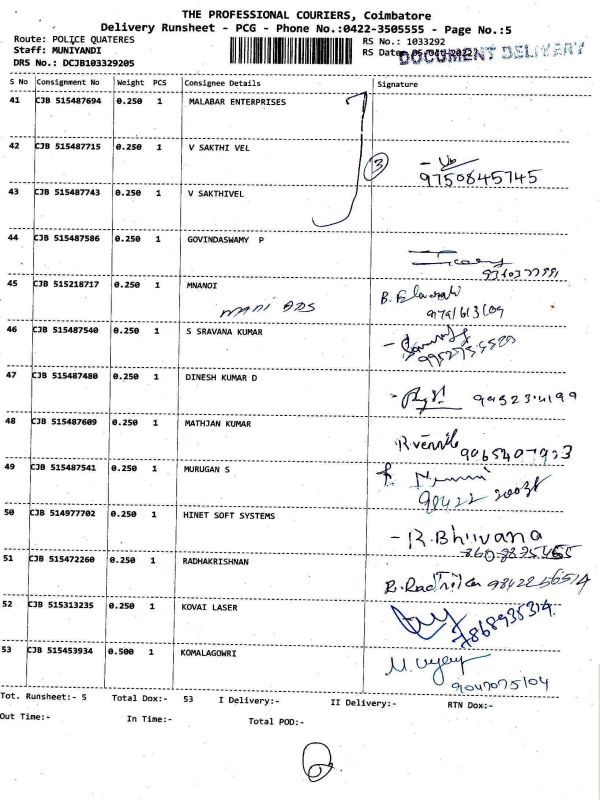 THE PROFESSIONAL COURIERS, Coimbatore
Delivery Runsheet - PCG - Phone No.:0422-3505555 - Page No.:5
Route: POLICE QUATERES RS No.: 1033292
Staff: MUNIYANDI RS Date: DOCUMENT DELIVERY
DRS No.: DCJB103329205
S No Consignment No Weight PCS Consignee Details Signature
41 CJB 515487694 0.250 1 MALABAR ENTERPRISES
42 CJB 515487715 0.250 1 V SAKTHI VEL
3 9750845745
43 CJB 515487743 0.250 1 V SAKTHIVEL
44 CJB 515487586 0.250 1 GOVINDASWAMY P
45 CJB 515218717 0.250 1 MNANOI
mani ADS
46 CJB 515487540 0.250 1 S SRAVANA KUMAR
47 CJB 515487480 0.250 1 DINESH KUMAR D
48 CJB 515487609 0.250 1 MATHJAN KUMAR
49 CJB 515487541 0.250 1 MURUGAN S
50 CJB 514977702 0.250 1 HINET SOFT SYSTEMS
R.Bhuvana
51 CJB 515472260 0.250 1 RADHAKRISHNAN
R.Radhika 9842256514
52 CJB 515313235 0.250 1 KOVAI LASER
7868935314
53 CJB 515453934 0.500 1 KOMALAGOWRI
9047075104
Tot. Runsheet:- 5 Total Dox:- 53 I Delivery:- II Delivery:- RTN Dox:-
Out Time:- In Time:- Total POD:-